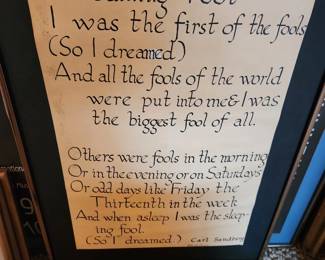 I was the first of the fools
(So I dreamed)
And all the fools of the world
were put into me & I was
the biggest fool of all.
Others were fools in the morning
Or in the evening or on Saturdays
Or odd days like Friday the
Thirteenth in the week
And when asleep I was the sleep-
ing fool.
(So I dreamed.) Carl Sandburg